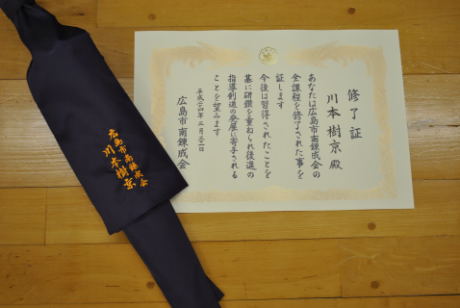 修了証
川本樹京殿
あなたは広島市南錬成会の
全課程を修了された事を
証します
今後は習得されたことを
基に研鑽を重ねられ後進の
指導剣道の発展に寄与される
ことを望みます
広島市南錬成会
広島市南錬成会
川本樹京